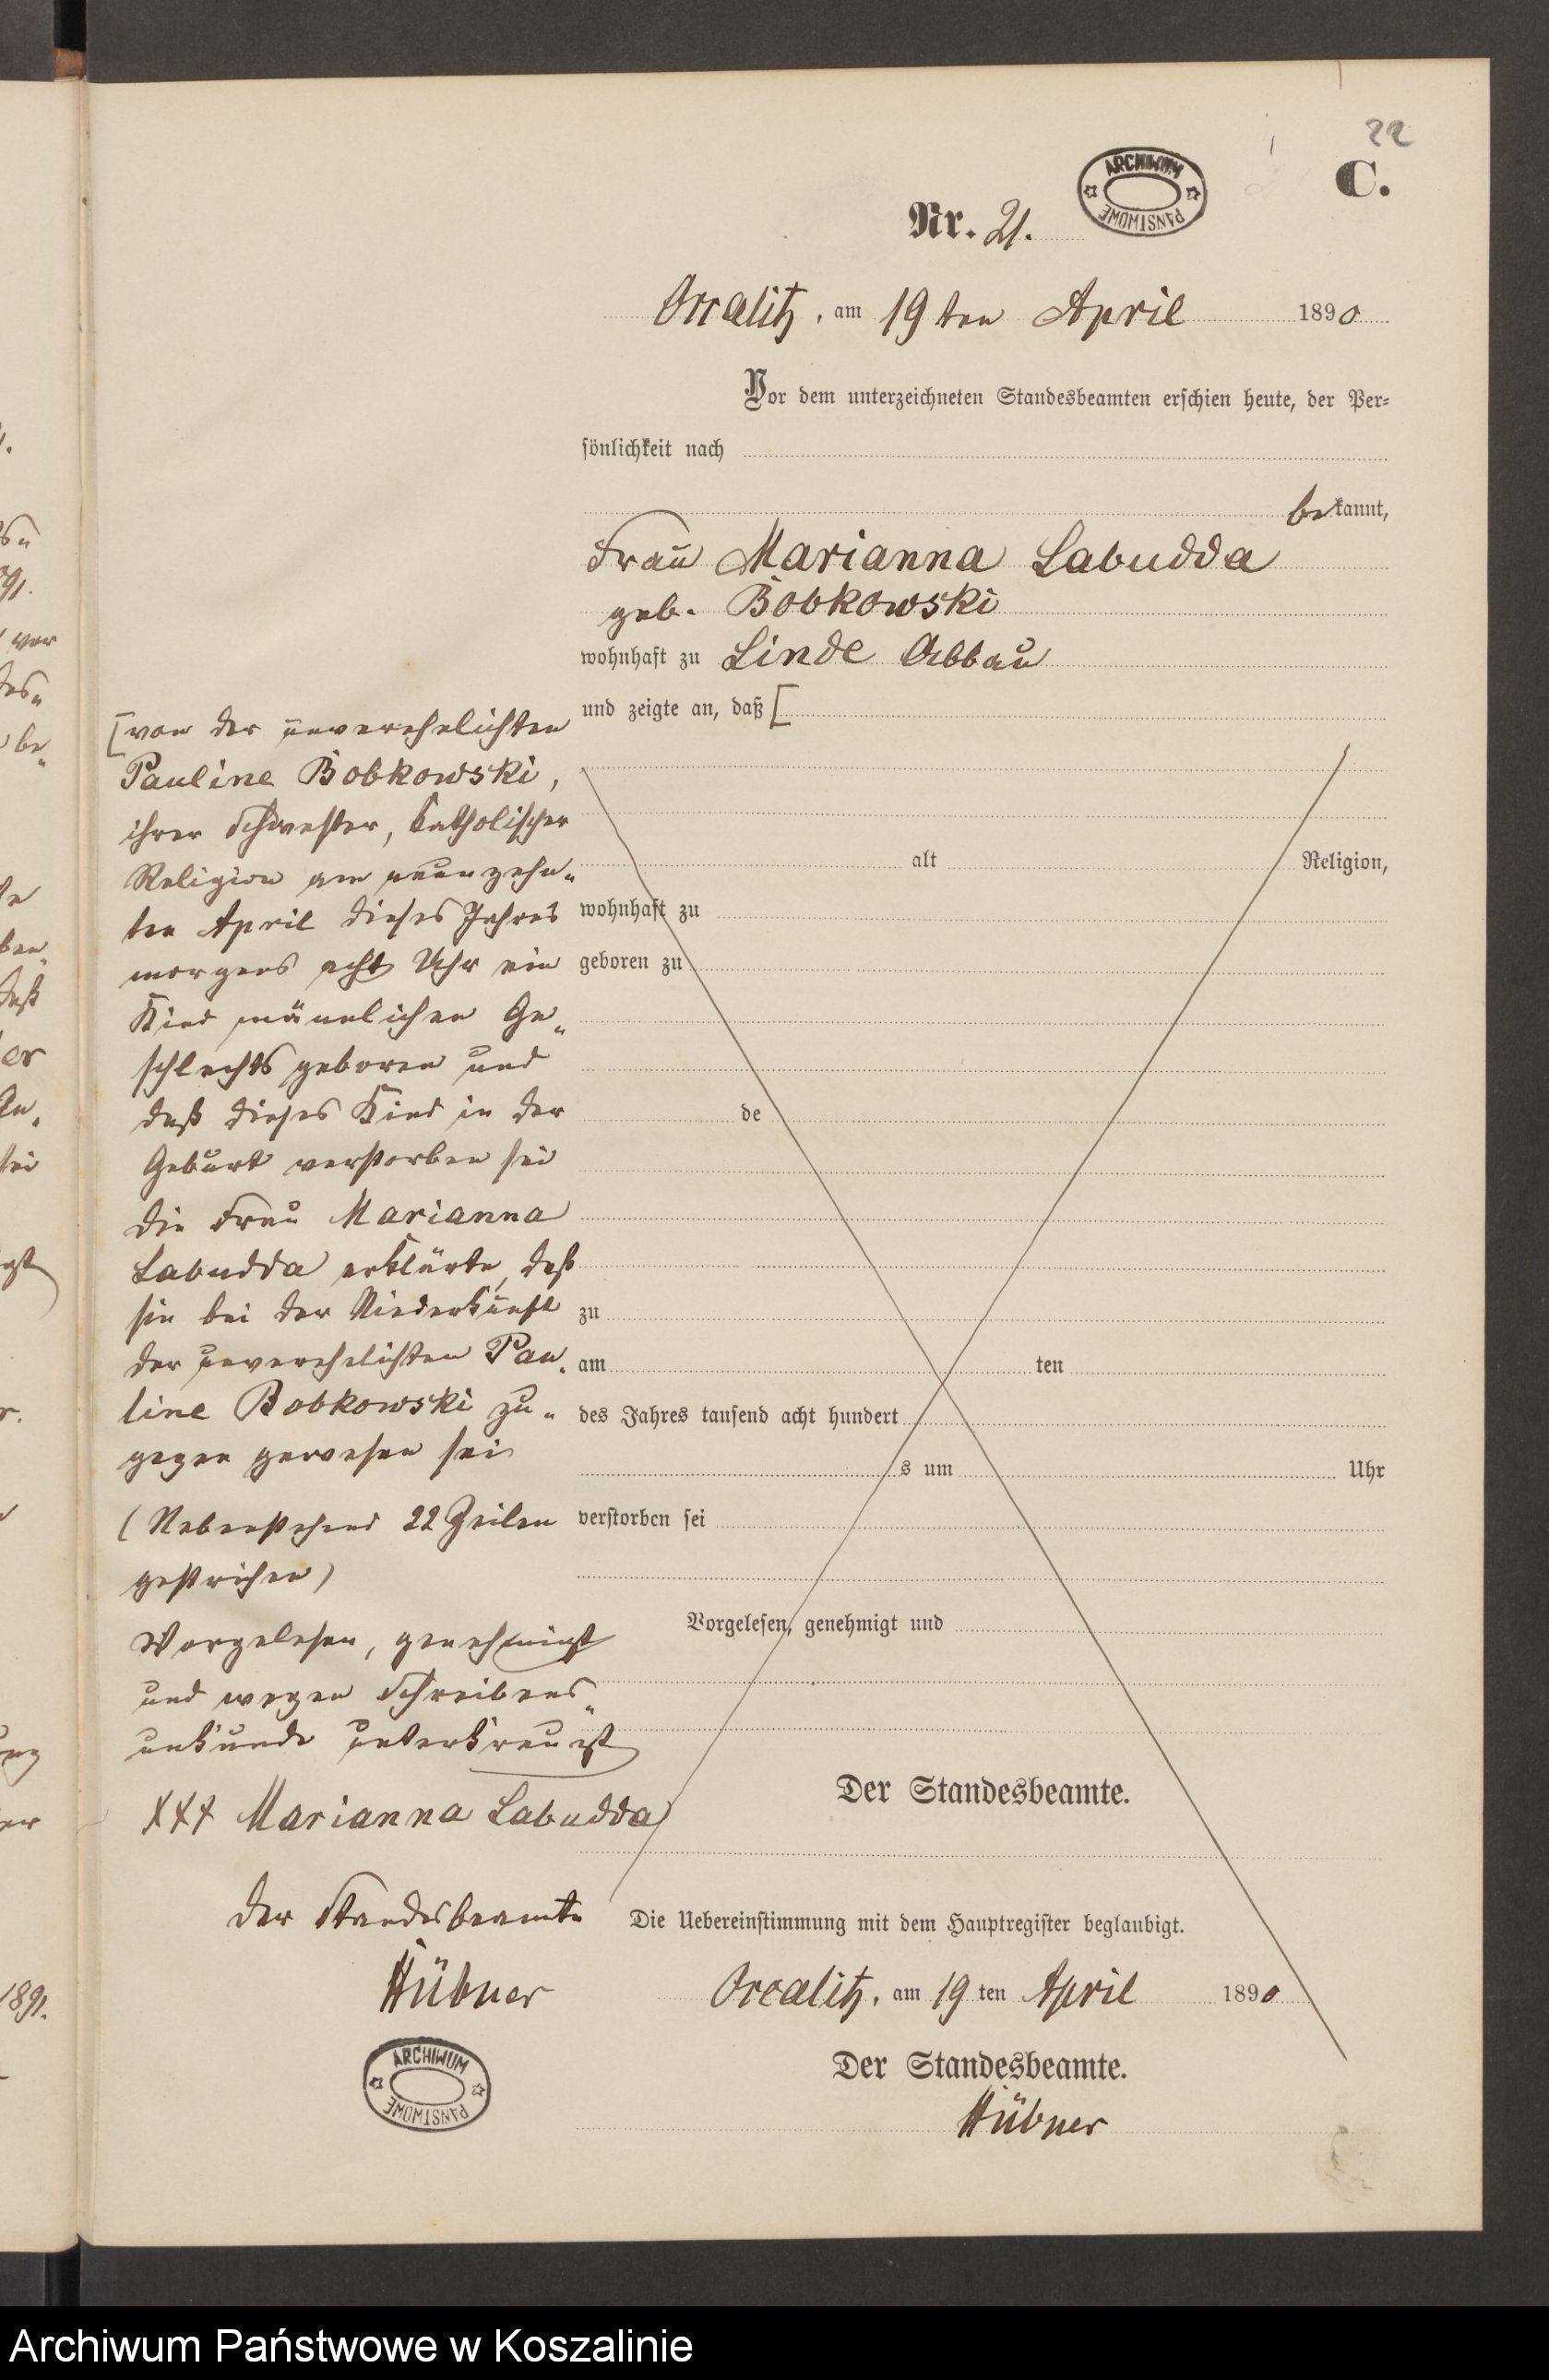 22
C.
ARCHIWUM PAŃSTWOWE
Nr. 21.
am 19 ten April 1890
Vor dem unterzeichneten Standesbeamten erschien heute, der Per=
sönlichkeit nach
bekannt,
Frau Marianna Labudda
geb. Bobkowski
wohnhaft zu Linde Abbau
und zeigte an, daß [
[von der unverehelichten
Pauline Bobkowski,
ihrer Schwester, katholischer
Religion am neunzehn„
ten April dieses Jahres
morgens acht Uhr ein
Kind männlichen Ge„
schlechts geboren und
daß dieses Kind in der
Geburt verstorben sei
die Frau Marianna
Labudda erklärte, daß
sie bei der Niederkunft
der unverehelichten Pau„
line Bobkowski zu„
gegen gewesen sei
(Nebenstehend 22 Zeilen
gestrichen)
Vorgelesen, genehmigt
und wegen Schreibens„
unkunde unterkreuzt
XXX Marianna Labudda
der Standesbeamte
Hübner
ARCHIWUM PAŃSTWOWE
alt Religion,
wohnhaft zu
geboren zu
de
zu
am ten
des Jahres tausend acht hundert
s um Uhr
verstorben sei
Vorgelesen, genehmigt und
Der Standesbeamte.
Die Uebereinstimmung mit dem Hauptregister beglaubigt.
am 19 ten April 1890
Der Standesbeamte.
Hübner
Archiwum Państwowe w Koszalinie